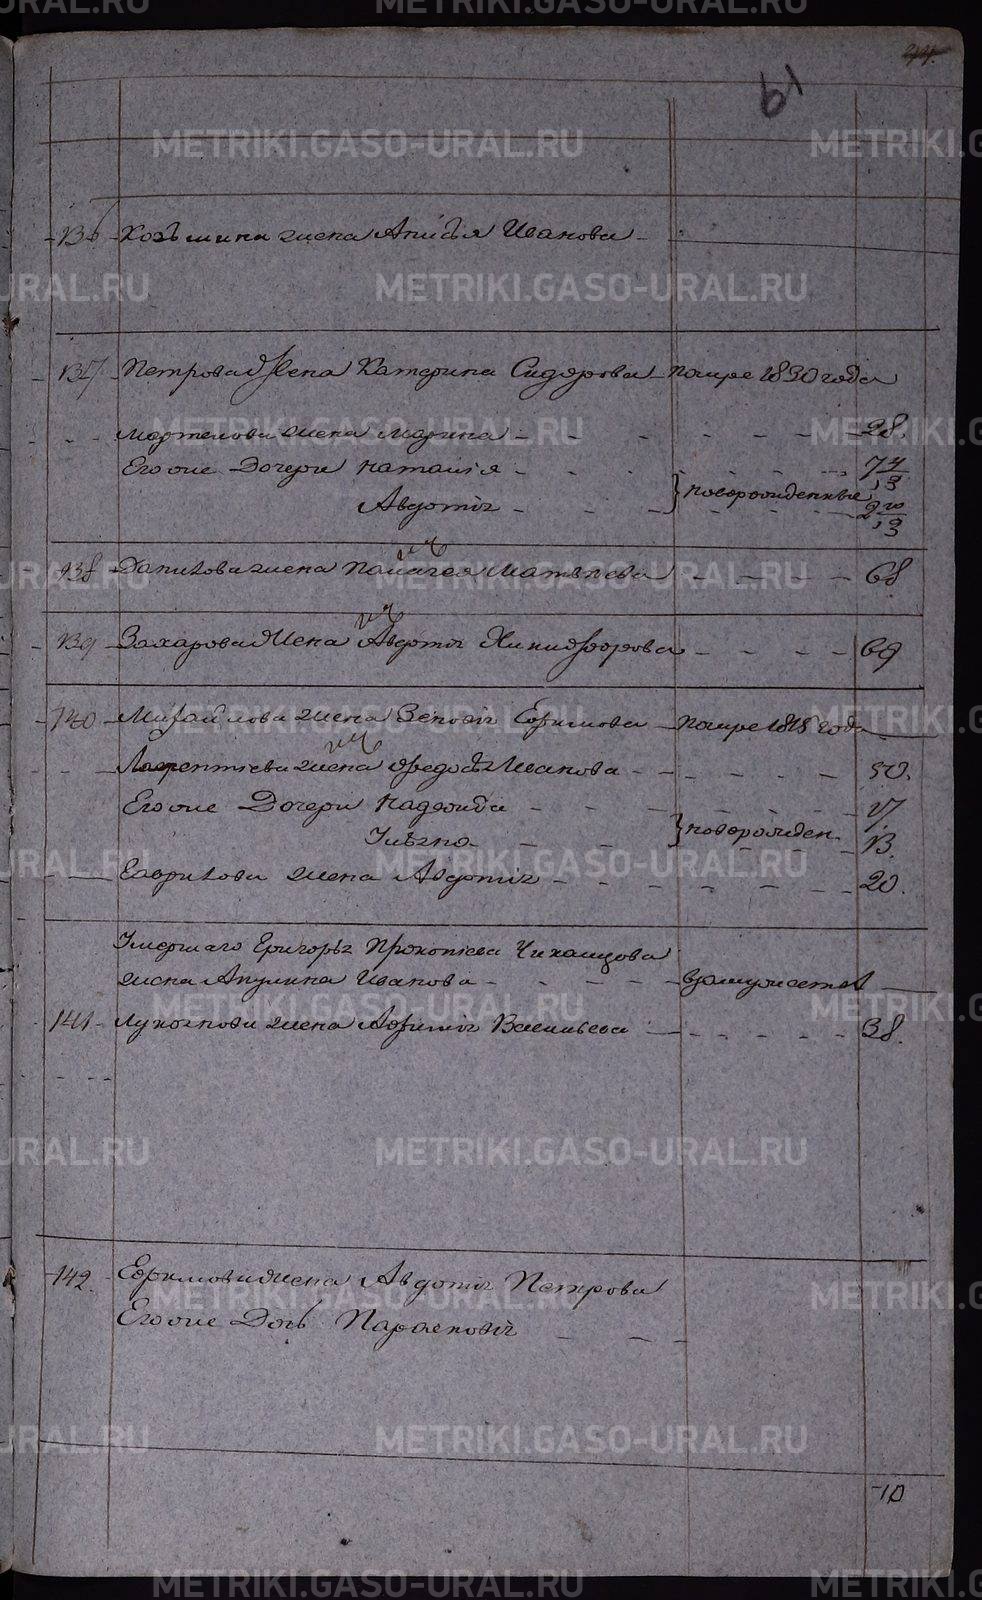 61
136 Козьмина жена Анисья Иванова
137 Петрова жена Катерина Сидорова помре 1830 года
Мартемова жена Марина 28.
Егоже Дочери Наталiя 7 4/13
Авдотiя } новорожденные 2 10/13
138 Данилова жена Палагея Матвеева 68
139 Захарова жена Авдотiя Никифорова 69
140 Михайлова жена Зеновiя Ефимова помре 1818 года
Лаврентiева жена Федосья Иванова 50.
Егоже Дочери Надежда 17.
Ульяна } новорожден 13.
Гаврилова жена Авдотiя 20.
Умершаго Григорья Прокопiева Чихамцова
жена Акулина Иванова взамужестве
141 Лукоянова жена Афимiя Васильева 38.
142. Ефимова жена Авдотiя Петрова
Егоже Дочь Парасковiя
10
METRIKI.GASO-URAL.RU